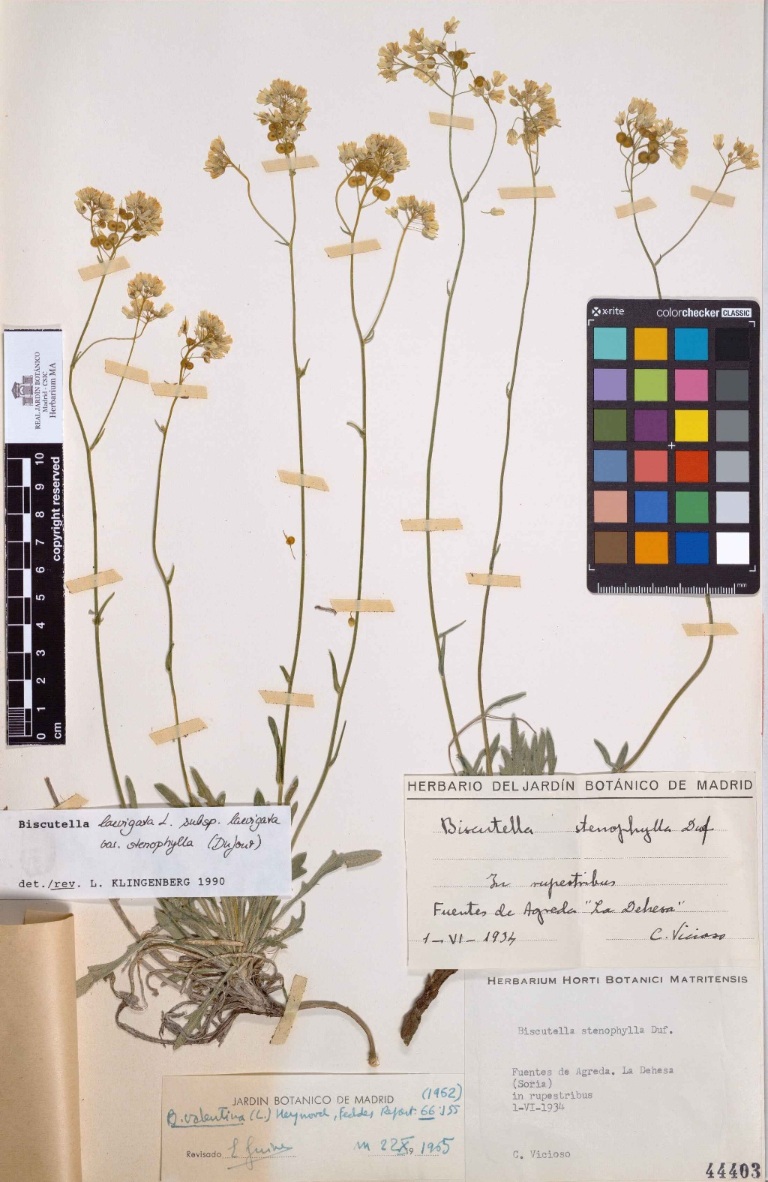 x-rite colorchecker CLASSIC
mm
REAL JARDÍN BOTÁNICO
Madrid - CSIC
Herbarium MA
copyright reserved
0 1 2 3 4 5 6 7 8 9 10
cm
Biscutella laevigata L. subsp. laevigata
var. stenophylla (Dufour)
det./rev. L. KLINGENBERG 1990
HERBARIO DEL JARDÍN BOTÁNICO DE MADRID
Biscutella stenophylla Duf
In rupestribus
Fuentes de Agreda "La Dehesa"
1-VI-1934 C. Vicioso
HERBARIUM HORTI BOTANICI MATRITENSIS
Biscutella stenophylla Duf.
Fuentes de Agreda, La Dehesa
(Soria)
in rupestribus
1-VI-1934
C. Vicioso
44403
JARDIN BOTANICO DE MADRID (1962)
B. valentina (L.) Heywood, Feddes Repert. 66:155
Revisado E Guinea 22 X 1965